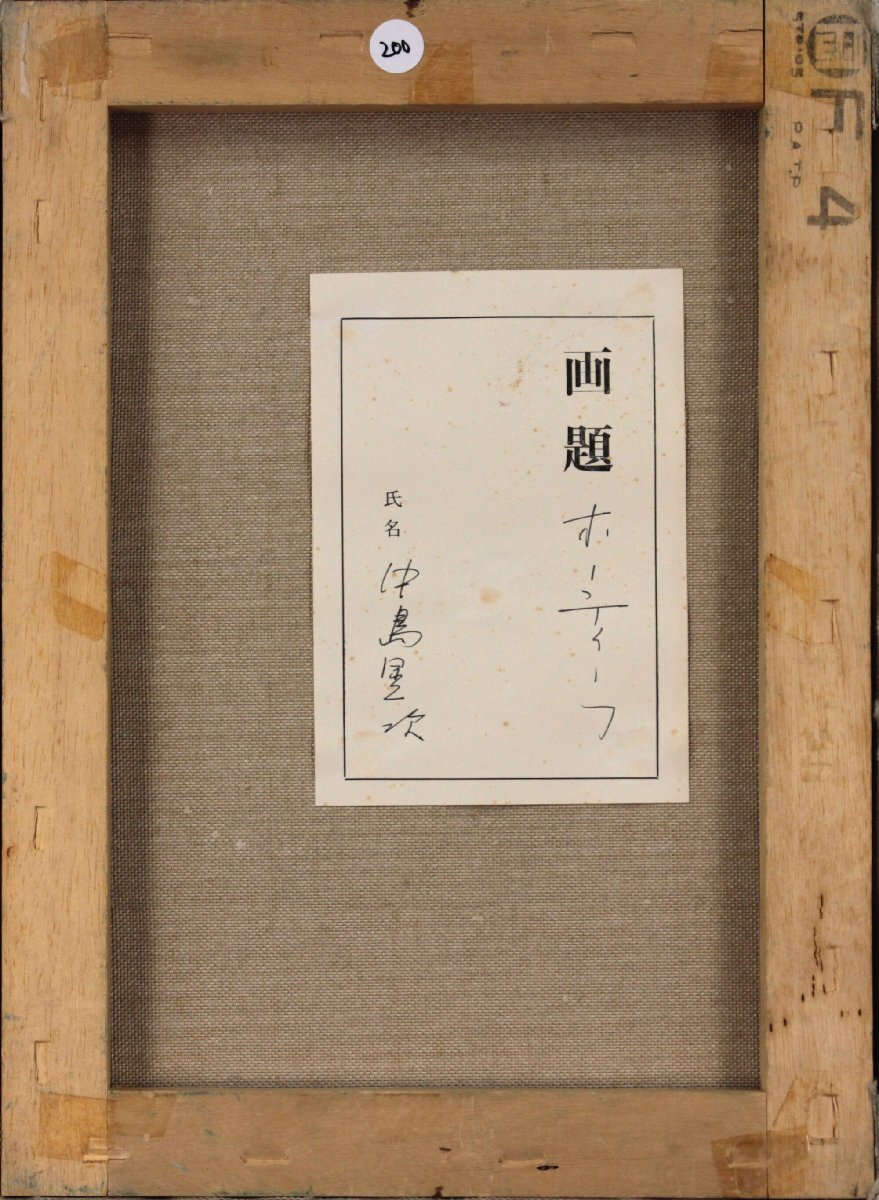 200
F 4
画題 ホーティーフ
氏名 中島 次